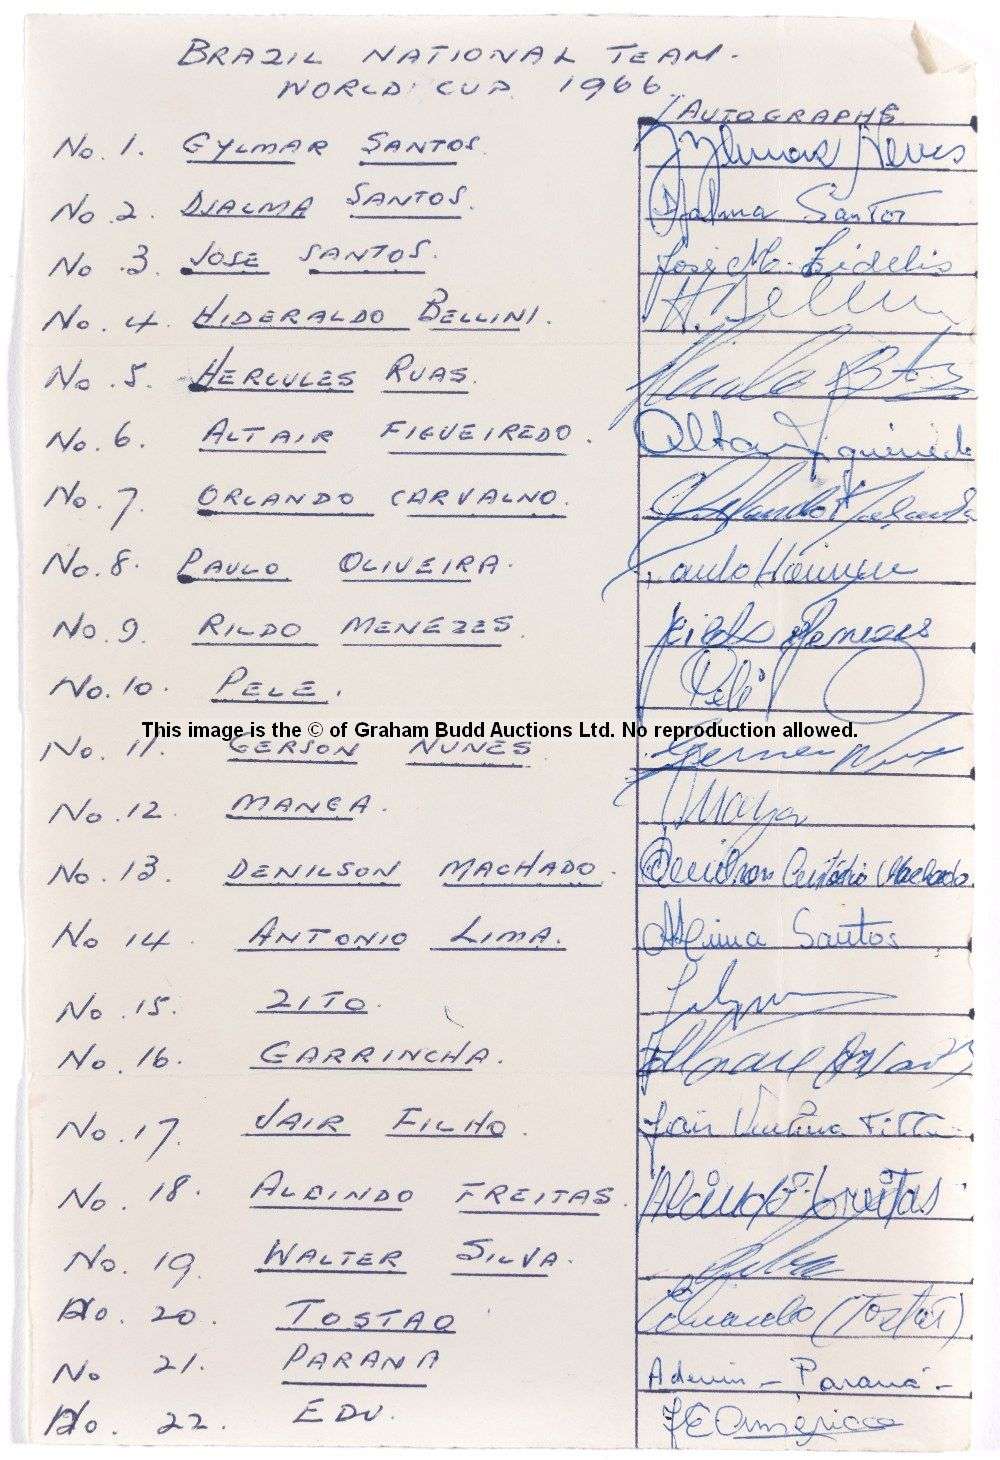 BRAZIL NATIONAL TEAM.
WORLD CUP 1966
AUTOGRAPHS
No. 1. GYLMAR SANTOS. Gylmar Neves
No. 2. DJALMA SANTOS. Djalma Santos
No. 3. JOSE SANTOS. José M. Fidelis
No. 4. HIDERALDO BELLINI. H. Bellini
No. 5. HERCULES RUAS.
No. 6. ALTAIR FIGUEIREDO. Altair Figueiredo
No. 7. ORLANDO CARVALNO. Orlando
No. 8. PAULO OLIVEIRA. Paulo Henrique
No. 9. RILDO MENEZES. Rildo Menezes
No. 10. PELE. Pelé
This image is the © of Graham Budd Auctions Ltd. No reproduction allowed.
No. 11. GERSON NUNES. Gerson Nunes
No. 12. MANGA.
No. 13. DENILSON MACHADO. Denilson Custódio Machado
No 14. ANTONIO LIMA. Santos
No .15. ZITO.
No. 16. GARRINCHA.
No. 17. JAIR FILHO. Jair Ventura Filho
No. 18. ALCINDO FREITAS. Alcindo Freitas
No. 19. WALTER SILVA. Silva
No. 20. TOSTAO Eduardo (Tostão)
No 21. PARANA Ademir - Paraná -
No. 22. EDU. J E Américo